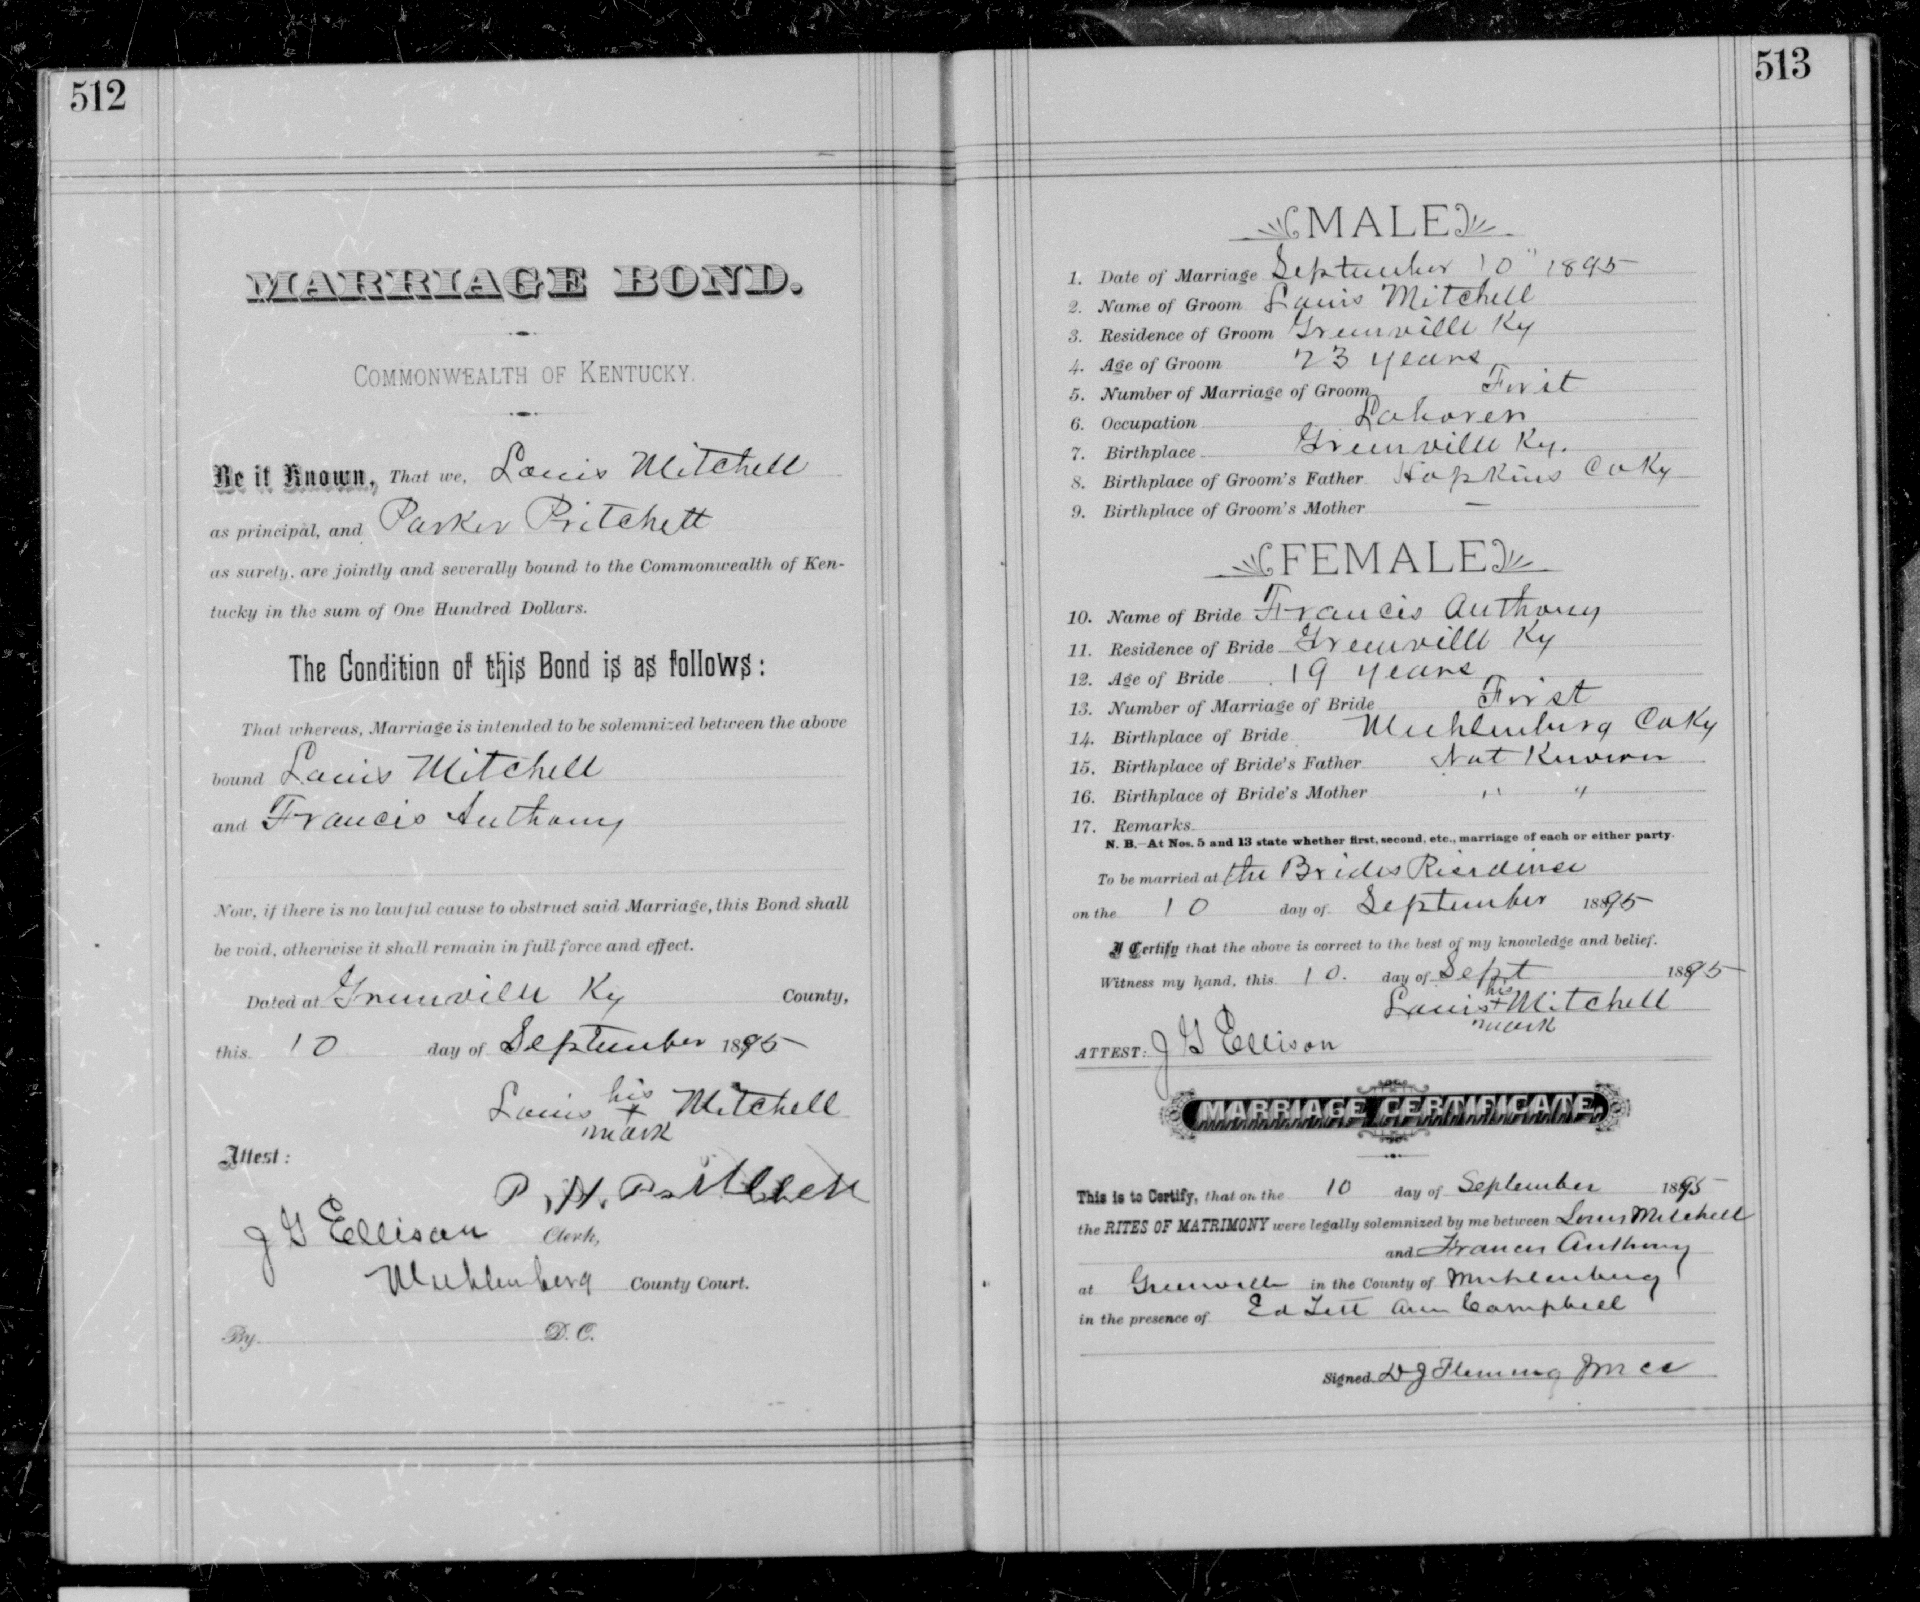 512
MARRIAGE BOND.
COMMONWEALTH OF KENTUCKY.
Be it Known, That we, Louis Mitchell
as principal, and Parker Pritchett
as surety, are jointly and severally bound to the Commonwealth of Ken-
tucky in the sum of One Hundred Dollars.
The Condition of this Bond is as follows:
That whereas, Marriage is intended to be solemnized between the above
bound Louis Mitchell
and Francis Anthony
Now, if there is no lawful cause to obstruct said Marriage, this Bond shall
be void, otherwise it shall remain in full force and effect.
Dated at Greenville Ky County,
this 10 day of September 1895
Louis his + mark Mitchell
Attest:
P. H. Pritchett
J G Ellison Clerk,
Muhlenberg County Court.
By D. C.
513
MALE
1. Date of Marriage September 10" 1895
2. Name of Groom Louis Mitchell
3. Residence of Groom Greenville Ky
4. Age of Groom 23 years
5. Number of Marriage of Groom First
6. Occupation Laborer
7. Birthplace Greenville Ky.
8. Birthplace of Groom's Father Hopkins Co Ky
9. Birthplace of Groom's Mother —
FEMALE
10. Name of Bride Francis Anthony
11. Residence of Bride Greenville Ky
12. Age of Bride 19 years
13. Number of Marriage of Bride First
14. Birthplace of Bride Muhlenburg Co Ky
15. Birthplace of Bride's Father Not Known
16. Birthplace of Bride's Mother " "
17. Remarks
N. B.—At Nos. 5 and 13 state whether first, second, etc., marriage of each or either party.
To be married at the Brides Risidence
on the 10 day of September 1895
I Certify that the above is correct to the best of my knowledge and belief.
Witness my hand, this 10. day of Sept 1895
Louis his + mark Mitchell
ATTEST: J G Ellison
MARRIAGE CERTIFICATE.
This is to Certify, that on the 10 day of September 1895
the RITES OF MATRIMONY were legally solemnized by me between Louis Mitchell
and Francis Anthony
at Greenville in the County of Muhlenburg
in the presence of Ed Ann Campbell
Signed D J Fleming